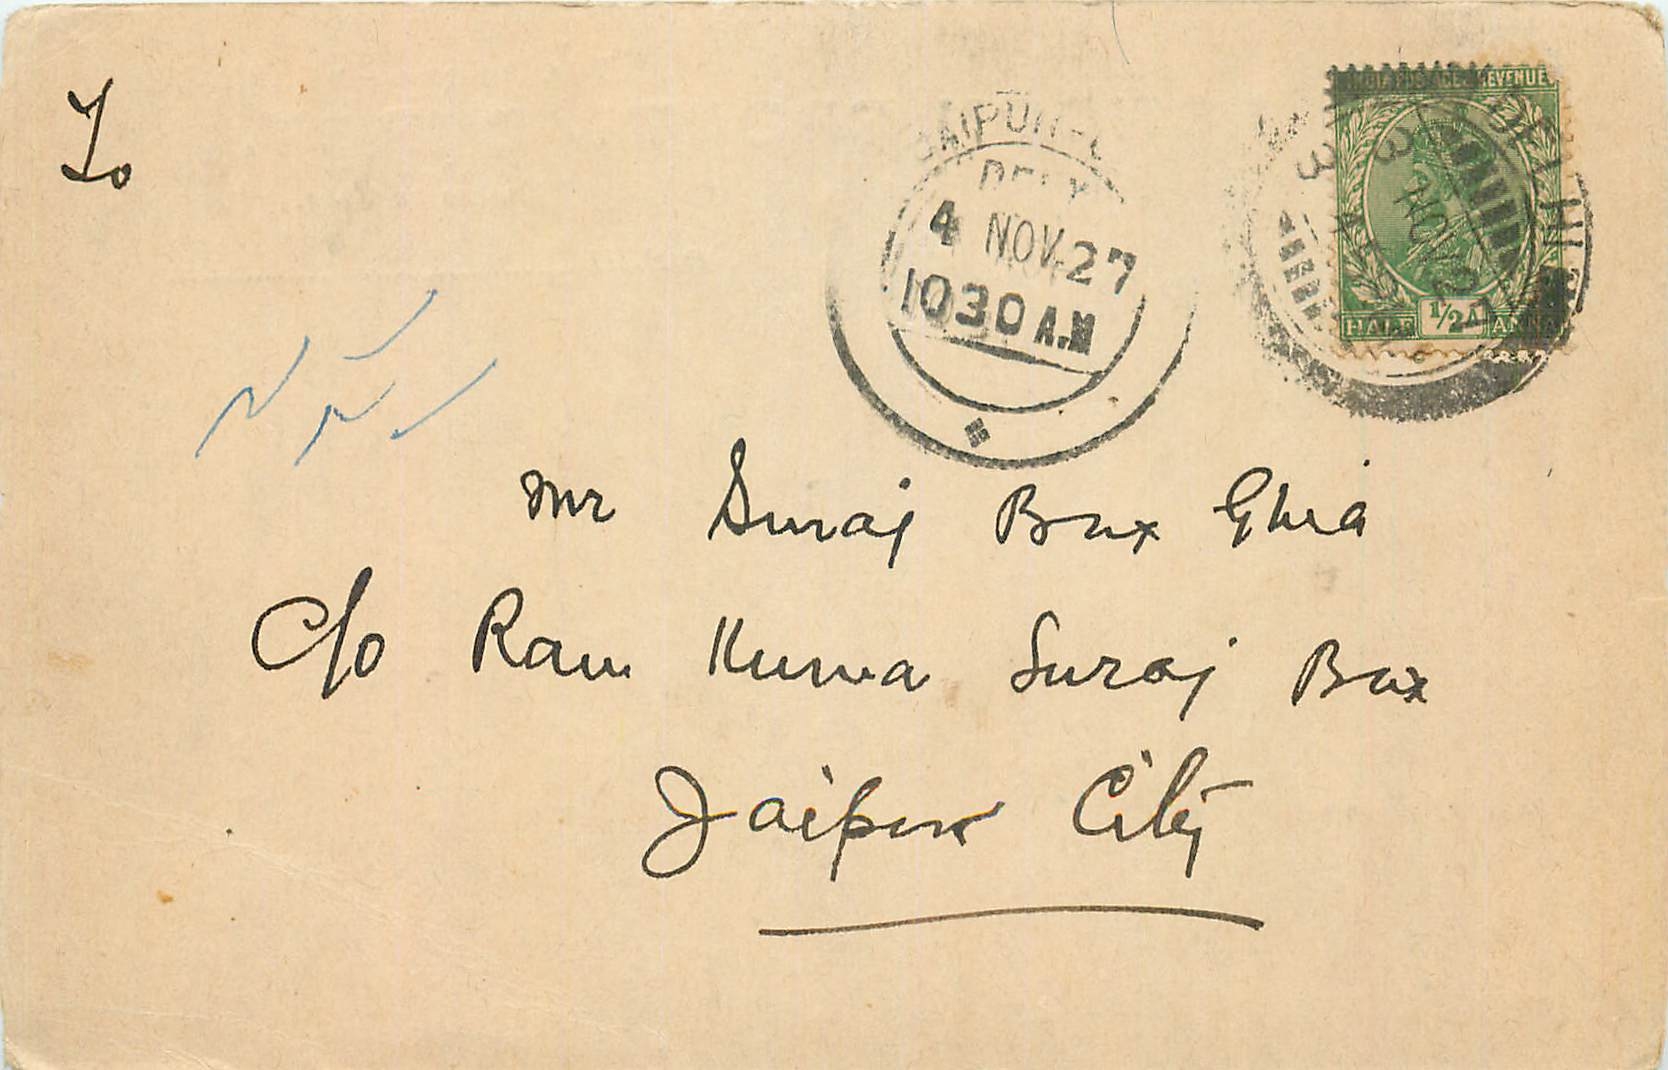 To
JAIPUR
DELY
4 NOV. 27
1030 A.M
DELHI
3 NOV. 27
INDIA POSTAGE & REVENUE
HALF 1/2 A ANNA
Mr Suraj Bux Ghia
C/o Ram Kuma Suraj Bux
Jaipur City